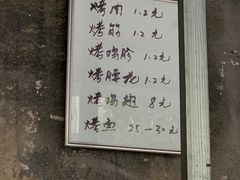 烤肉 1.2元
烤筋 1.2元
烤鸡胗 1.2元
烤腰花 1.2元
烤鸡翅 8元
烤鱼 25—30元